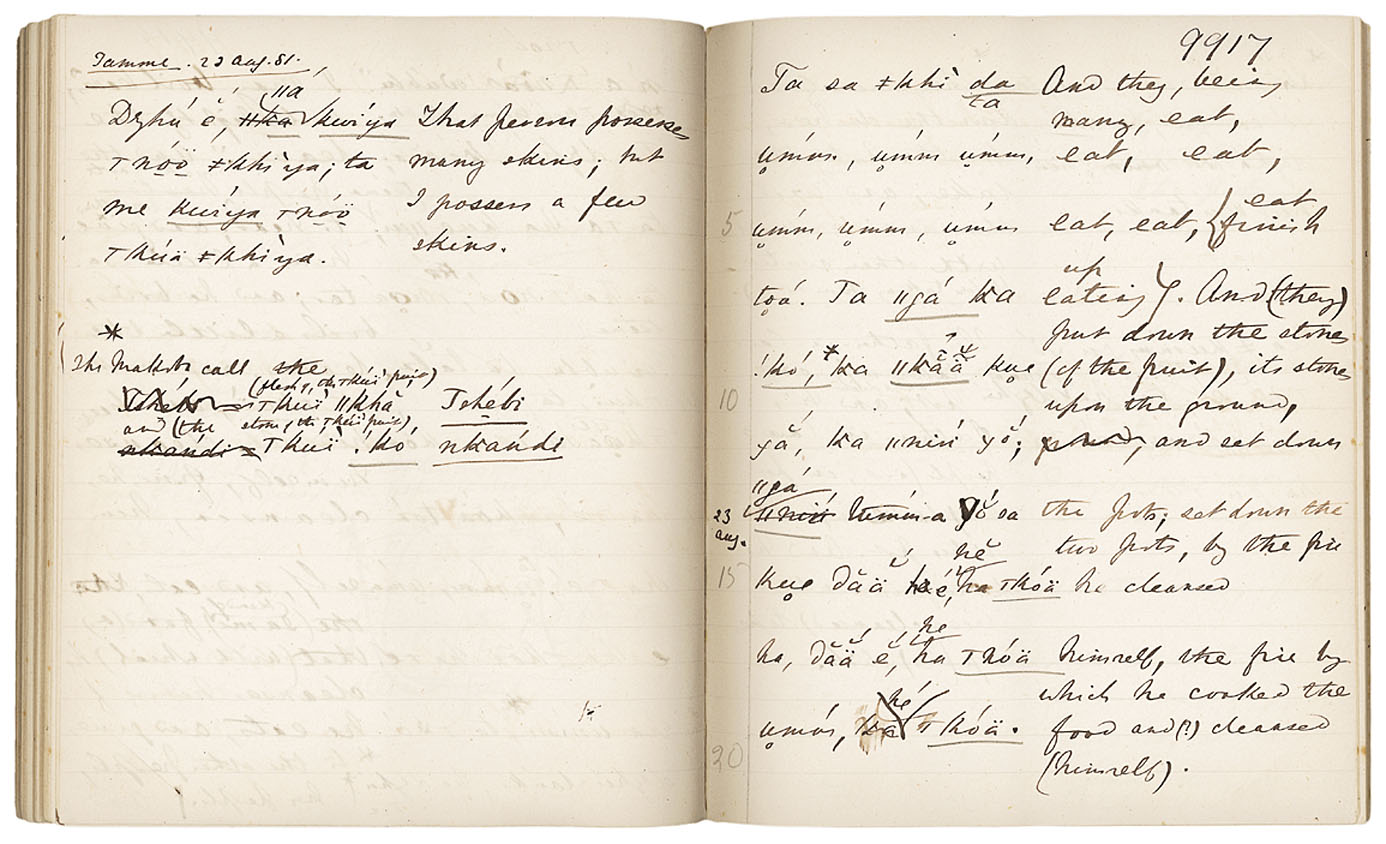 Tamme. 23 Aug. 81.
Dzhú é, ǁa kwiya That person possesses
ǀnóö ǂkhìya; ta many skins; but
me kwiya ǀnóö I possess a few
skins.
ǀkúä ǂkhìya.
*
The Makoba call the
(flesh of the ǀkúï fruit,)
ǀkúï ǁkhā Tshébi
and (the stone of the ǀkúï fruit),
nkandi = ǀkuï !kó nkandi
9917
Ta sa ǂkhì da And they, being
ta many, eat,
ṵmm, ṵmm ṵmm, eat, eat,
5 ṵmm, ṵmm, ṵmm eat, eat, {eat
finish
up
to̤á. Ta ǁgá ka eating}. And (they)
put down the stones
!kó,* ka ǁkāä kṵe (of the fruit), its stones
10 upon the ground,
yǎ, ka ǁniṅ yǒ; and set down
ǁgá
23 Aug. ǁniṅ húmm-a yǒ sa the pots; set down the
two pots, by the fire
hě
15 kṵe dǎä é, ha ǀkóä he cleansed
he
ha, dǎä é, ha ǀkóä himself, the fire by
which he cooked the
hé
ṵmm, ka ǀkóä. food and (?) cleansed
20 (himself).